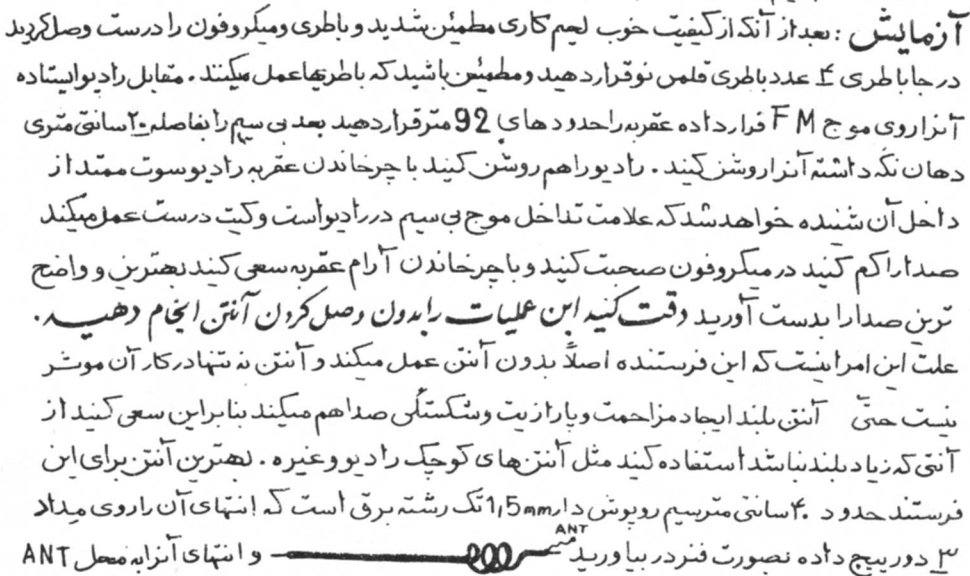 آزمایش : بعد از آنکه از کیفیت خوب لحیم کاری مطمئن شدید و باطری و میکروفون را درست وصل کردید
در جا باطری ۴ عدد باطری قلمی نو قرار دهید و مطمئن باشید که باطریها عمل میکنند . مقابل رادیو ایستاده
آنرا روی موج FM قرار داده عقربه را حدودهای 92 متر قرار دهید بعد بی سیم را بفاصله ۲۰ سانتی متری
دهان نگه داشته آنرا روشن کنید . رادیو را هم روشن کنید با چرخاندن عقربه رادیو سوت ممتد از
داخل آن شنیده خواهد شد که علامت تداخل موج بی سیم در رادیو است و کیت درست عمل میکند
صدا را کم کنید در میکروفون صحبت کنید و با چرخاندن آرام عقربه سعی کنید بهترین و واضح
ترین صدا را بدست آورید دقت کنید این عملیات را بدون وصل کردن آنتن انجام دهید .
علت این امر اینست که این فرستنده اصلاً بدون آنتن عمل میکند و آنتن نه تنها در کار آن موثر
نیست حتّی آنتن بلند ایجاد مزاحمت و پارازیت و شکستگی صدا هم میکند بنابراین سعی کنید از
آنتی که زیاد بلند نباشد استفاده کنید مثل آنتن های کوچک رادیو و غیره . بهترین آنتن برای این
فرستند حدود ۴۰ سانتی متر سیم روپوش دار 1,5mm تک رشته برق است که انتهای آن را روی مداد
۳ دور پیچ داده بصورت فنر در بیاورید ANT و انتهای آنرا به محل ANT